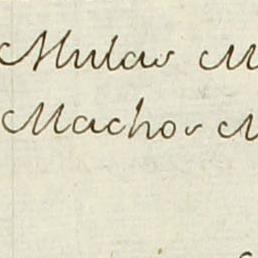 Mulas M
Machos M